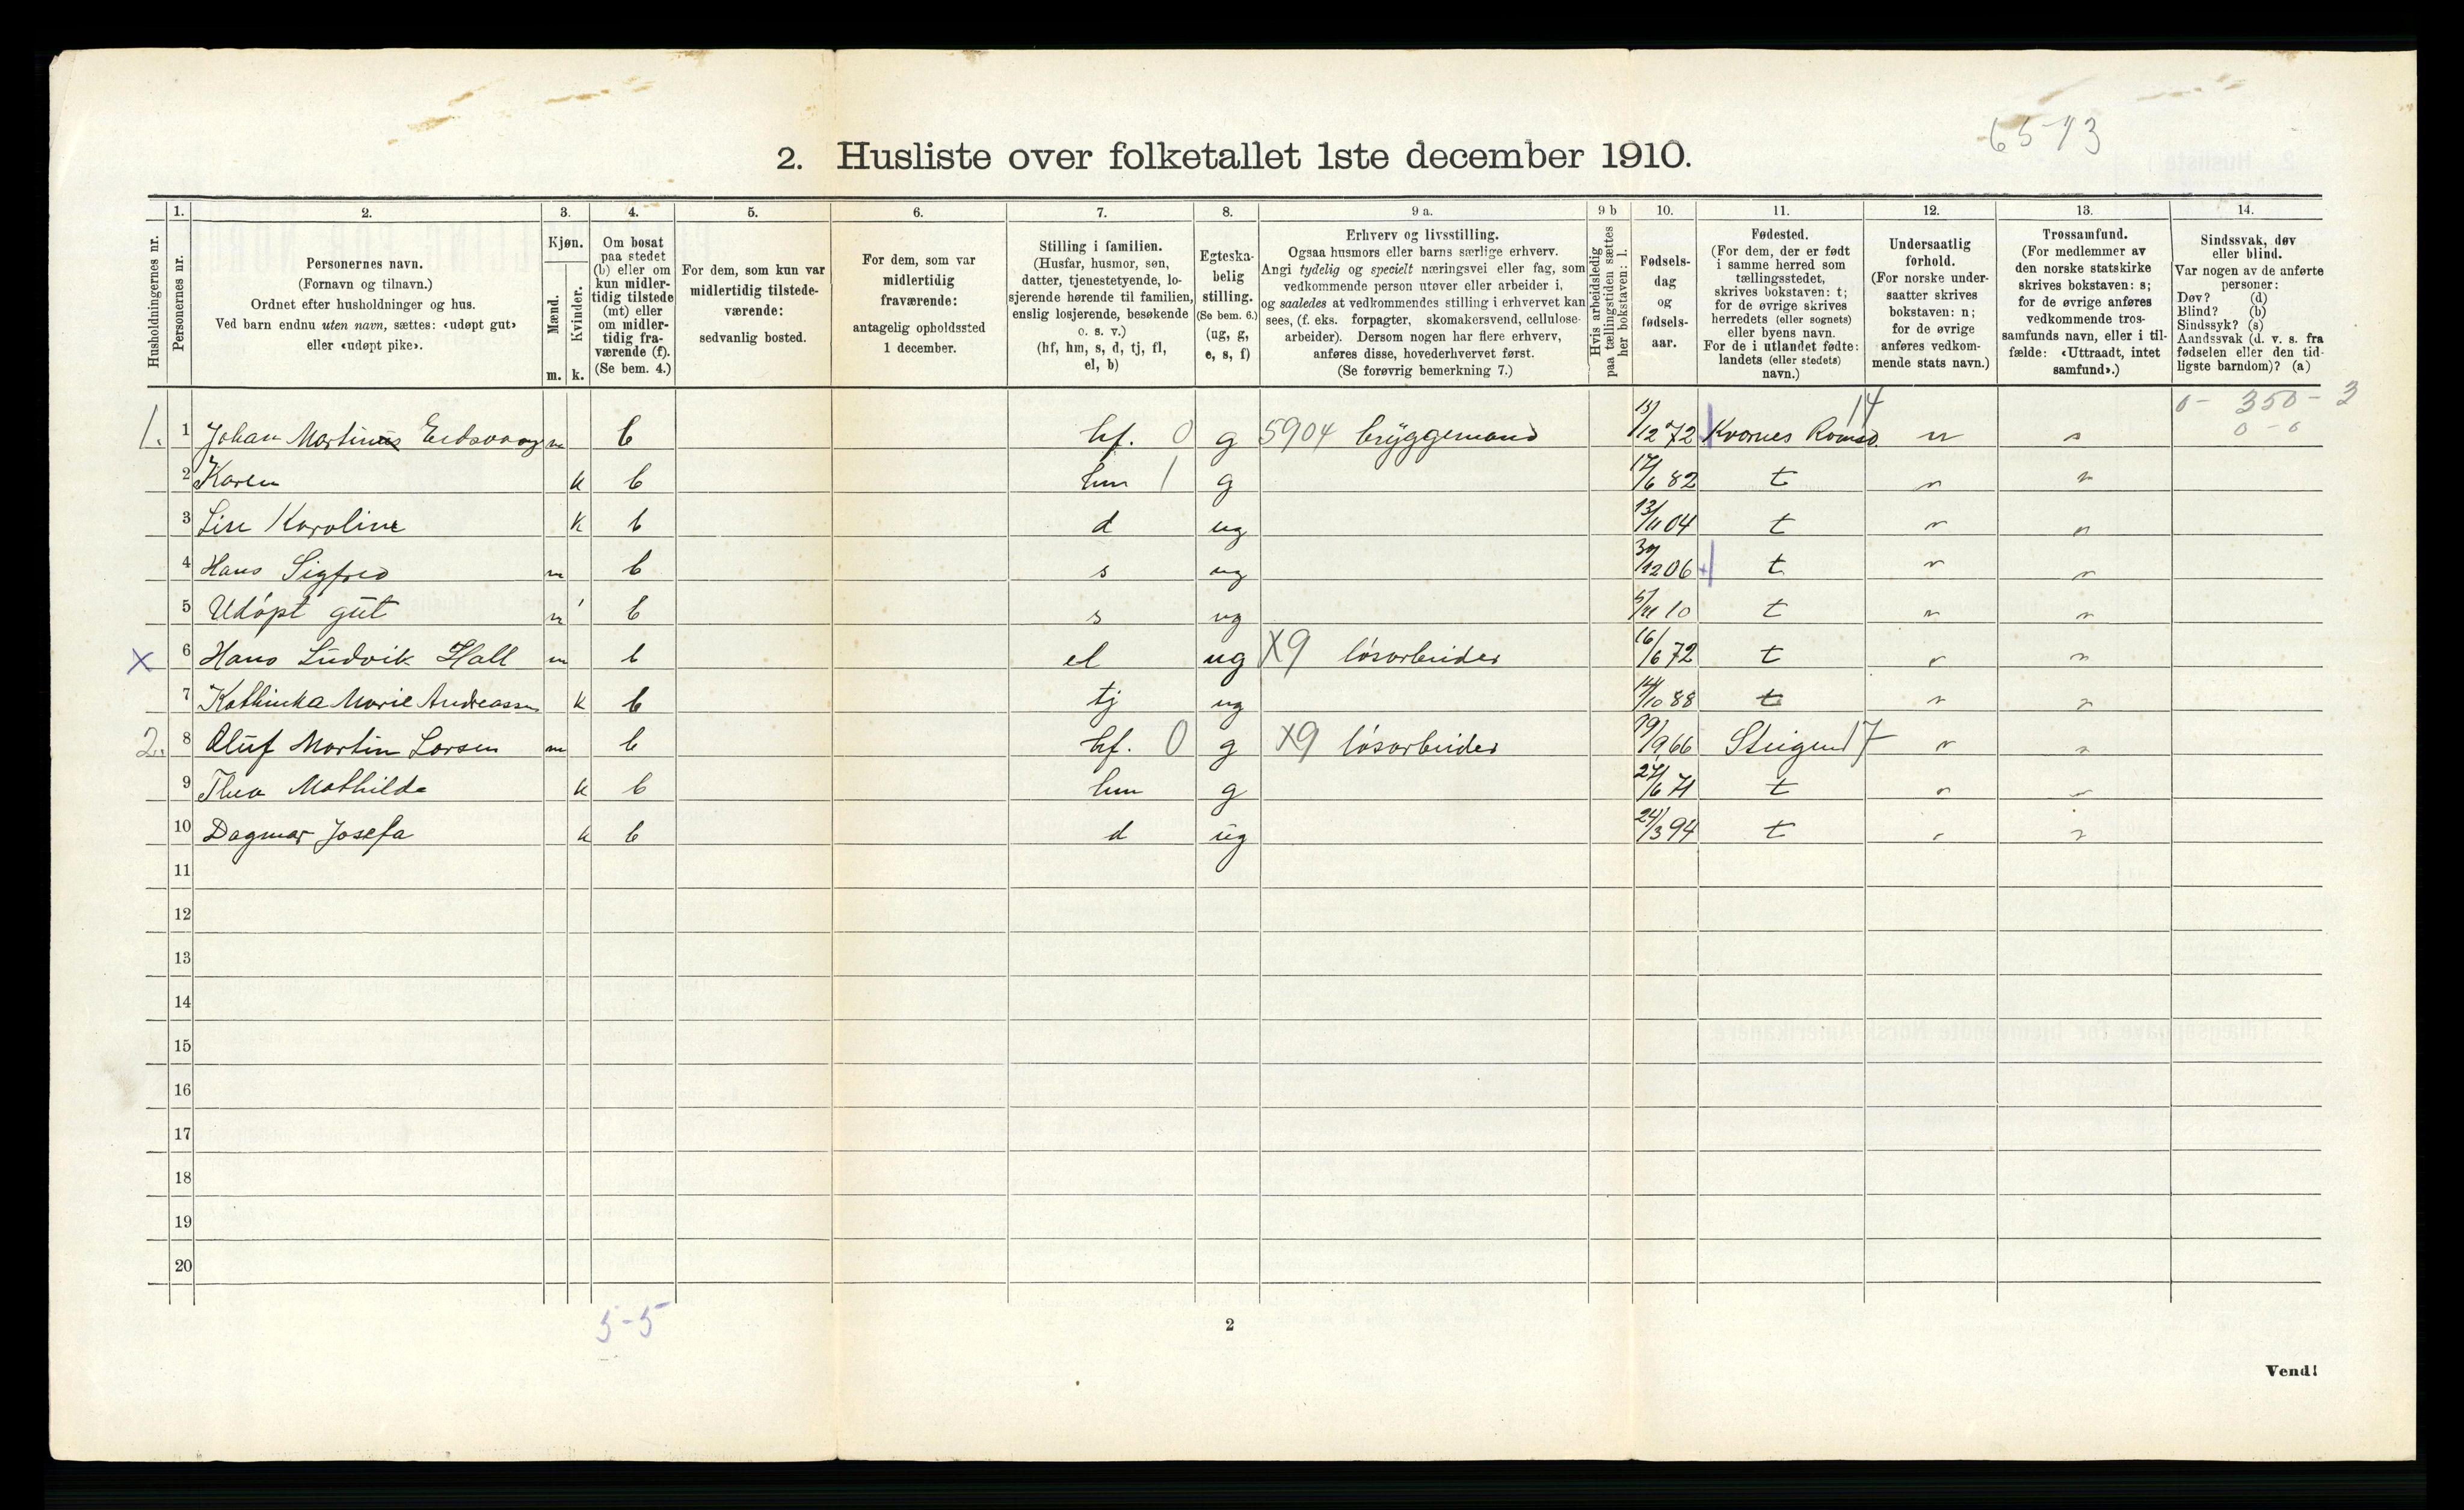 65-13
2. Husliste over folketallet 1ste december 1910.
Husholdningernes nr.
1.
Personernes nr.
2.
Personernes navn.
(Fornavn og tilnavn.)
Ordnet efter husholdninger og hus.
Ved barn endnu uten navn, sættes: «udøpt gut»
eller «udøpt pike».
3.
Kjøn.
Mænd.
Kvinder.
m. k.
4.
Om bosat
paa stedet
(b) eller om
kun midler-
tidig tilstede
(mt) eller
om midler-
tidig fra-
værende (f).
(Se bem. 4.)
5.
For dem, som kun var
midlertidig tilstede-
værende:
sedvanlig bosted.
6.
For dem, som var
midlertidig
fraværende:
antagelig opholdssted
1 december.
7.
Stilling i familien.
(Husfar, husmor, søn,
datter, tjenestetyende, lo-
sjerende hørende til familien,
enslig losjerende, besøkende
o. s. v.)
(hf, hm, s, d, tj, fl,
el, b)
8.
Egteska-
belig
stilling.
(Se bem. 6.)
(ug, g,
e, s, f)
9 a.
Erhverv og livsstilling.
Ogsaa husmors eller barns særlige erhverv.
Angi tydelig og specielt næringsvei eller fag, som
vedkommende person utøver eller arbeider i,
og saaledes at vedkommendes stilling i erhvervet kan
sees, (f. eks. forpagter, skomakersvend, cellulose-
arbeider). Dersom nogen har flere erhverv,
anføres disse, hovederhvervet først.
(Se forøvrig bemerkning 7.)
9 b
Hvis arbeidsledig
paa tællingstiden sættes
her bokstaven: l.
10.
Fødsels-
dag
og
fødsels-
aar.
11.
Fødested.
(For dem, der er født
i samme herred som
tællingsstedet,
skrives bokstaven: t;
for de øvrige skrives
herredets (eller sognets)
eller byens navn.
For de i utlandet fødte:
landets (eller stedets)
navn.)
12.
Undersaatlig
forhold.
(For norske under-
saatter skrives
bokstaven: n;
for de øvrige
anføres vedkom-
mende stats navn.)
13.
Trossamfund.
(For medlemmer av
den norske statskirke
skrives bokstaven: s;
for de øvrige anføres
vedkommende tros-
samfunds navn, eller i til-
fælde: «Uttraadt, intet
samfund».)
14.
Sindssvak, døv
eller blind.
Var nogen av de anførte
personer:
Døv? (d)
Blind? (b)
Sindssyk? (s)
Aandssvak (d. v. s. fra
fødselen eller den tid-
ligste barndom)? (a)
0 - 350 - 3
0 - 0
14
1. 1 Johan Martinus Eidsvaag m b hf. 0 g 5904 bryggemand 15/12 72 Kvernes Romsd. n s
2 Karen k b hm 1 g 17/6 82 t n
3 Lise Karoline k b d ug 13/11 04 t n
4 Hans Sigfred m b s ug 30/12 06 t n
5 Udøpt gut m b s ug 5/11 10 t n
x 6 Hans Ludvik Hall m b el ug X9 løsarbeider 16/6 72 t
7 Kathinka Marie Andreassen k b tj ug 14/10 88 t n
2. 8 Oluf Martin Larsen m b hf. 0 g X9 løsarbeider 19/9 66 Steigen 17 n
9 Thea Mathilde k b hm g 27/6 71 t
10 Dagmar Josefa k b d ug 24/3 94 t
11
12
13
14
15
16
17
18
19
20
5-5
2
Vend!